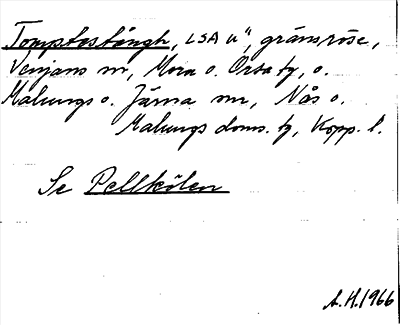 Tomptestångh, LSA U", gränsröse,
Venjans sn, Mora o. Orsa tg, o.
Malungs o. Järna snr, Nås o.
Malungs doms. tg, Kopp. l.
Se Pellkölen
A.H.1966